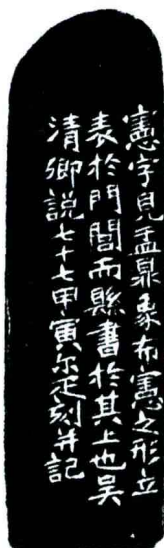 憲字見盂鼎象布憲之形立
表於門閭而縣書於其上也吴
清卿説七十七甲寅尔疋刻并記